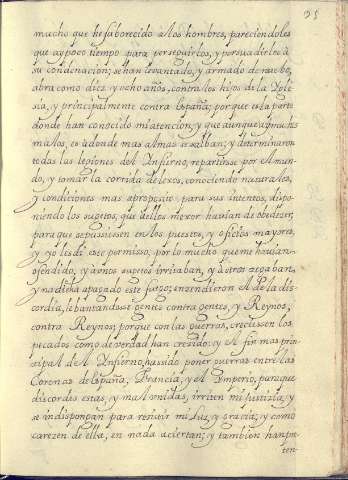 95
mucho que he faborecido a los hombres, pareciendoles
que ay poco tiempo para perseguirlos, y persuadirles à
su condenacion; se han levantado, y armado de nuebo,
abra como diez y ocho años, contra los hijos de la Igle-
sia, y principalmente contra España; porque es la parte
donde han conocido mi atencion; y que aunque ay muchos
malos, es à donde mas almas se salban; y determinaron
todas las legiones del Infierno, repartirse por el mun-
do, y tomar la corrida de lexos, conociendo naturales,
y condiciones mas aproposito para sus intentos, dispo-
niendo los sugetos, que dellos mexor havian de obedecer,
para que se pusiessen en los puestos, y oficios mayores,
y yo les di este permisso, por lo mucho que me havian
ofendido, y à unos sugetos irritaban, y à otros cegaban,
y nadie ha apagado este fuego; encendieron el de la dis-
cordia, lebantandose gentes contra gentes, y Reynos,
contra Reynos; porque con las guerras, creciessen los
pecados como de verdad han crecido: y el fin mas prin-
cipal del Infierno, ha sido poner guerras entre las
Coronas de España, Francia, y el Imperio, para que
discordes estas, y mal unidas, irriten mi Justicia; y
se indispongan para recivir mi luz, y gracia; y como
carezen de ella, en nada aciertan; y tambien han pre-
ten-